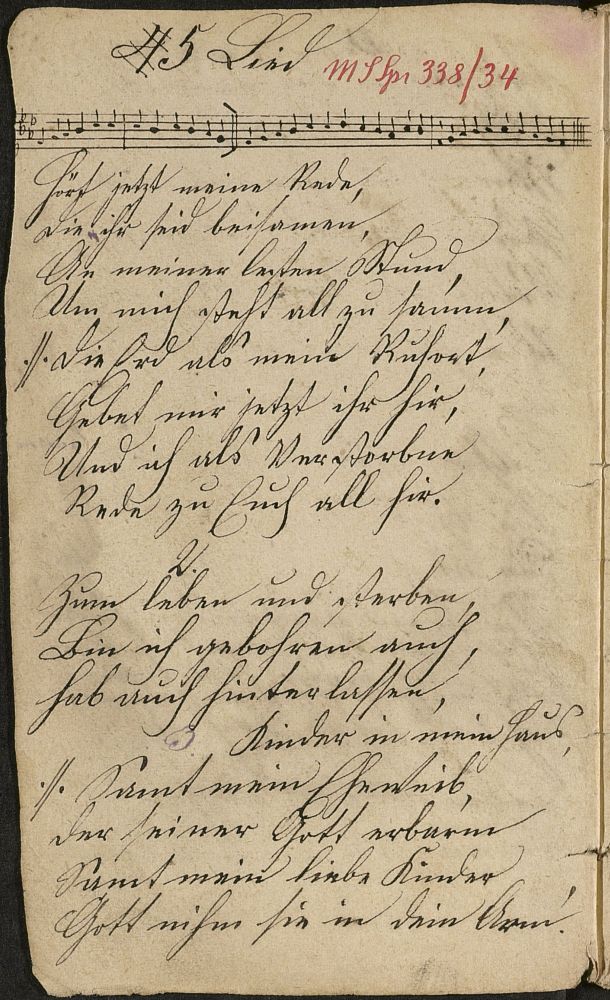 45 Lied
338/34
Hört jetzt meine Rede,
Die ihr seid beisamen,
An meiner lezten Stund,
Um mich steht all zu samm,
:/: Die Erd als mein Ruhort,
Gebet mir jetzt ihr hir,
Und ich als Verstorbne
Rede zu Euch all hir.
2.
Zum leben und sterben,
Bin ich gebohren auch,
hab auch hinterlassen,
Kinder in mein Haus,
:/: Samt mein Eheweib,
der seiner Gott erbarm
Samt mein liebe Kinder
Gott nihm sie in dein Arm.